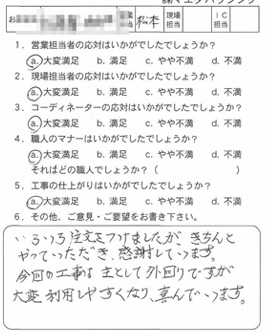 ㈱マエダハウジング
お 業 松本 現場担当 IC担当
1．営業担当者の応対はいかがでしたでしょうか？
a.大変満足 b.満足 c.やや不満 d.不満
2．現場担当者の応対はいかがでしたでしょうか？
a.大変満足 b.満足 c.やや不満 d.不満
3．コーディネーターの応対はいかがでしたでしょうか？
a.大変満足 b.満足 c.やや不満 d.不満
4．職人のマナーはいかがでしたでしょうか？
a.大変満足 b.満足 c.やや不満 d.不満
それはどの職人でしょうか？（ ）
5．工事の仕上がりはいかがでしたでしょうか？
a.大変満足 b.満足 c.やや不満 d.不満
6．その他、ご意見・ご要望をお書き下さい。
いろいろ注文をつけましたが、きちんと
やっていただき、感謝しています。
今回の工事は主として外回りですが
大変利用しやすくなり、喜んでいます。